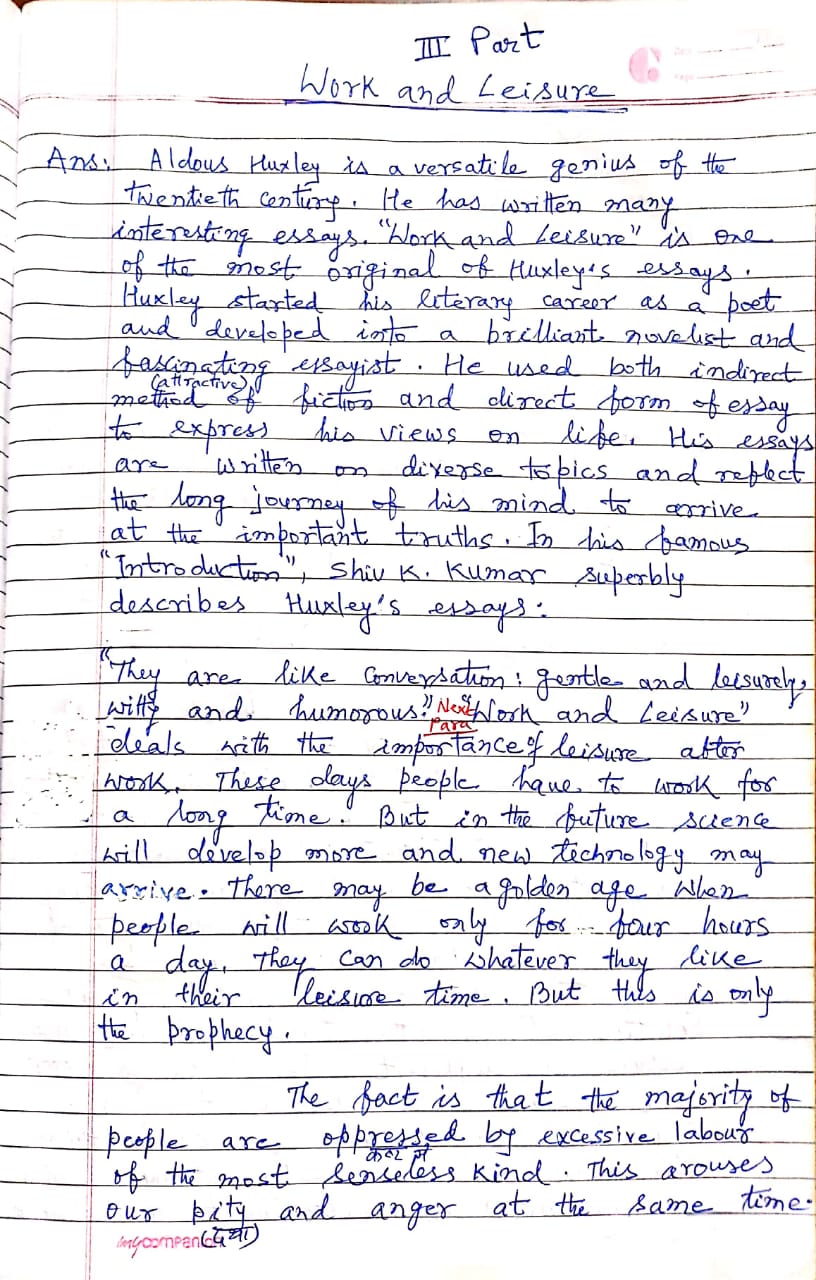 III Part
Work and Leisure
Ans: Aldous Huxley is a versatile genius of the
twentieth century. He has written many
interesting essays. "Work and Leisure" is one
of the most original of Huxley's essays.
Huxley started his literary career as a poet
and developed into a brilliant novelist and
fascinating essayist. He used both indirect
(attractive)
method of fiction and direct form of essay
to express his views on life. His essays
are written on diverse topics and reflect
the long journey of his mind to arrive
at the important truths. In his famous
"Introduction", Shiv K. Kumar superbly
describes Huxley's essays:
"They are like conversation: gentle and leisurely,
witty and humorous." Next Para "Work and Leisure"
deals with the importance of leisure after
work. These days people have to work for
a long time. But in the future science
will develop more and new technology may
arrive. There may be a golden age when
people will work only for four hours
a day. They can do whatever they like
in their leisure time. But this is only
the prophecy.
The fact is that the majority of
people are oppressed by excessive labour
of the most senseless kind. This arouses
our pity and anger at the same time.
(दया)